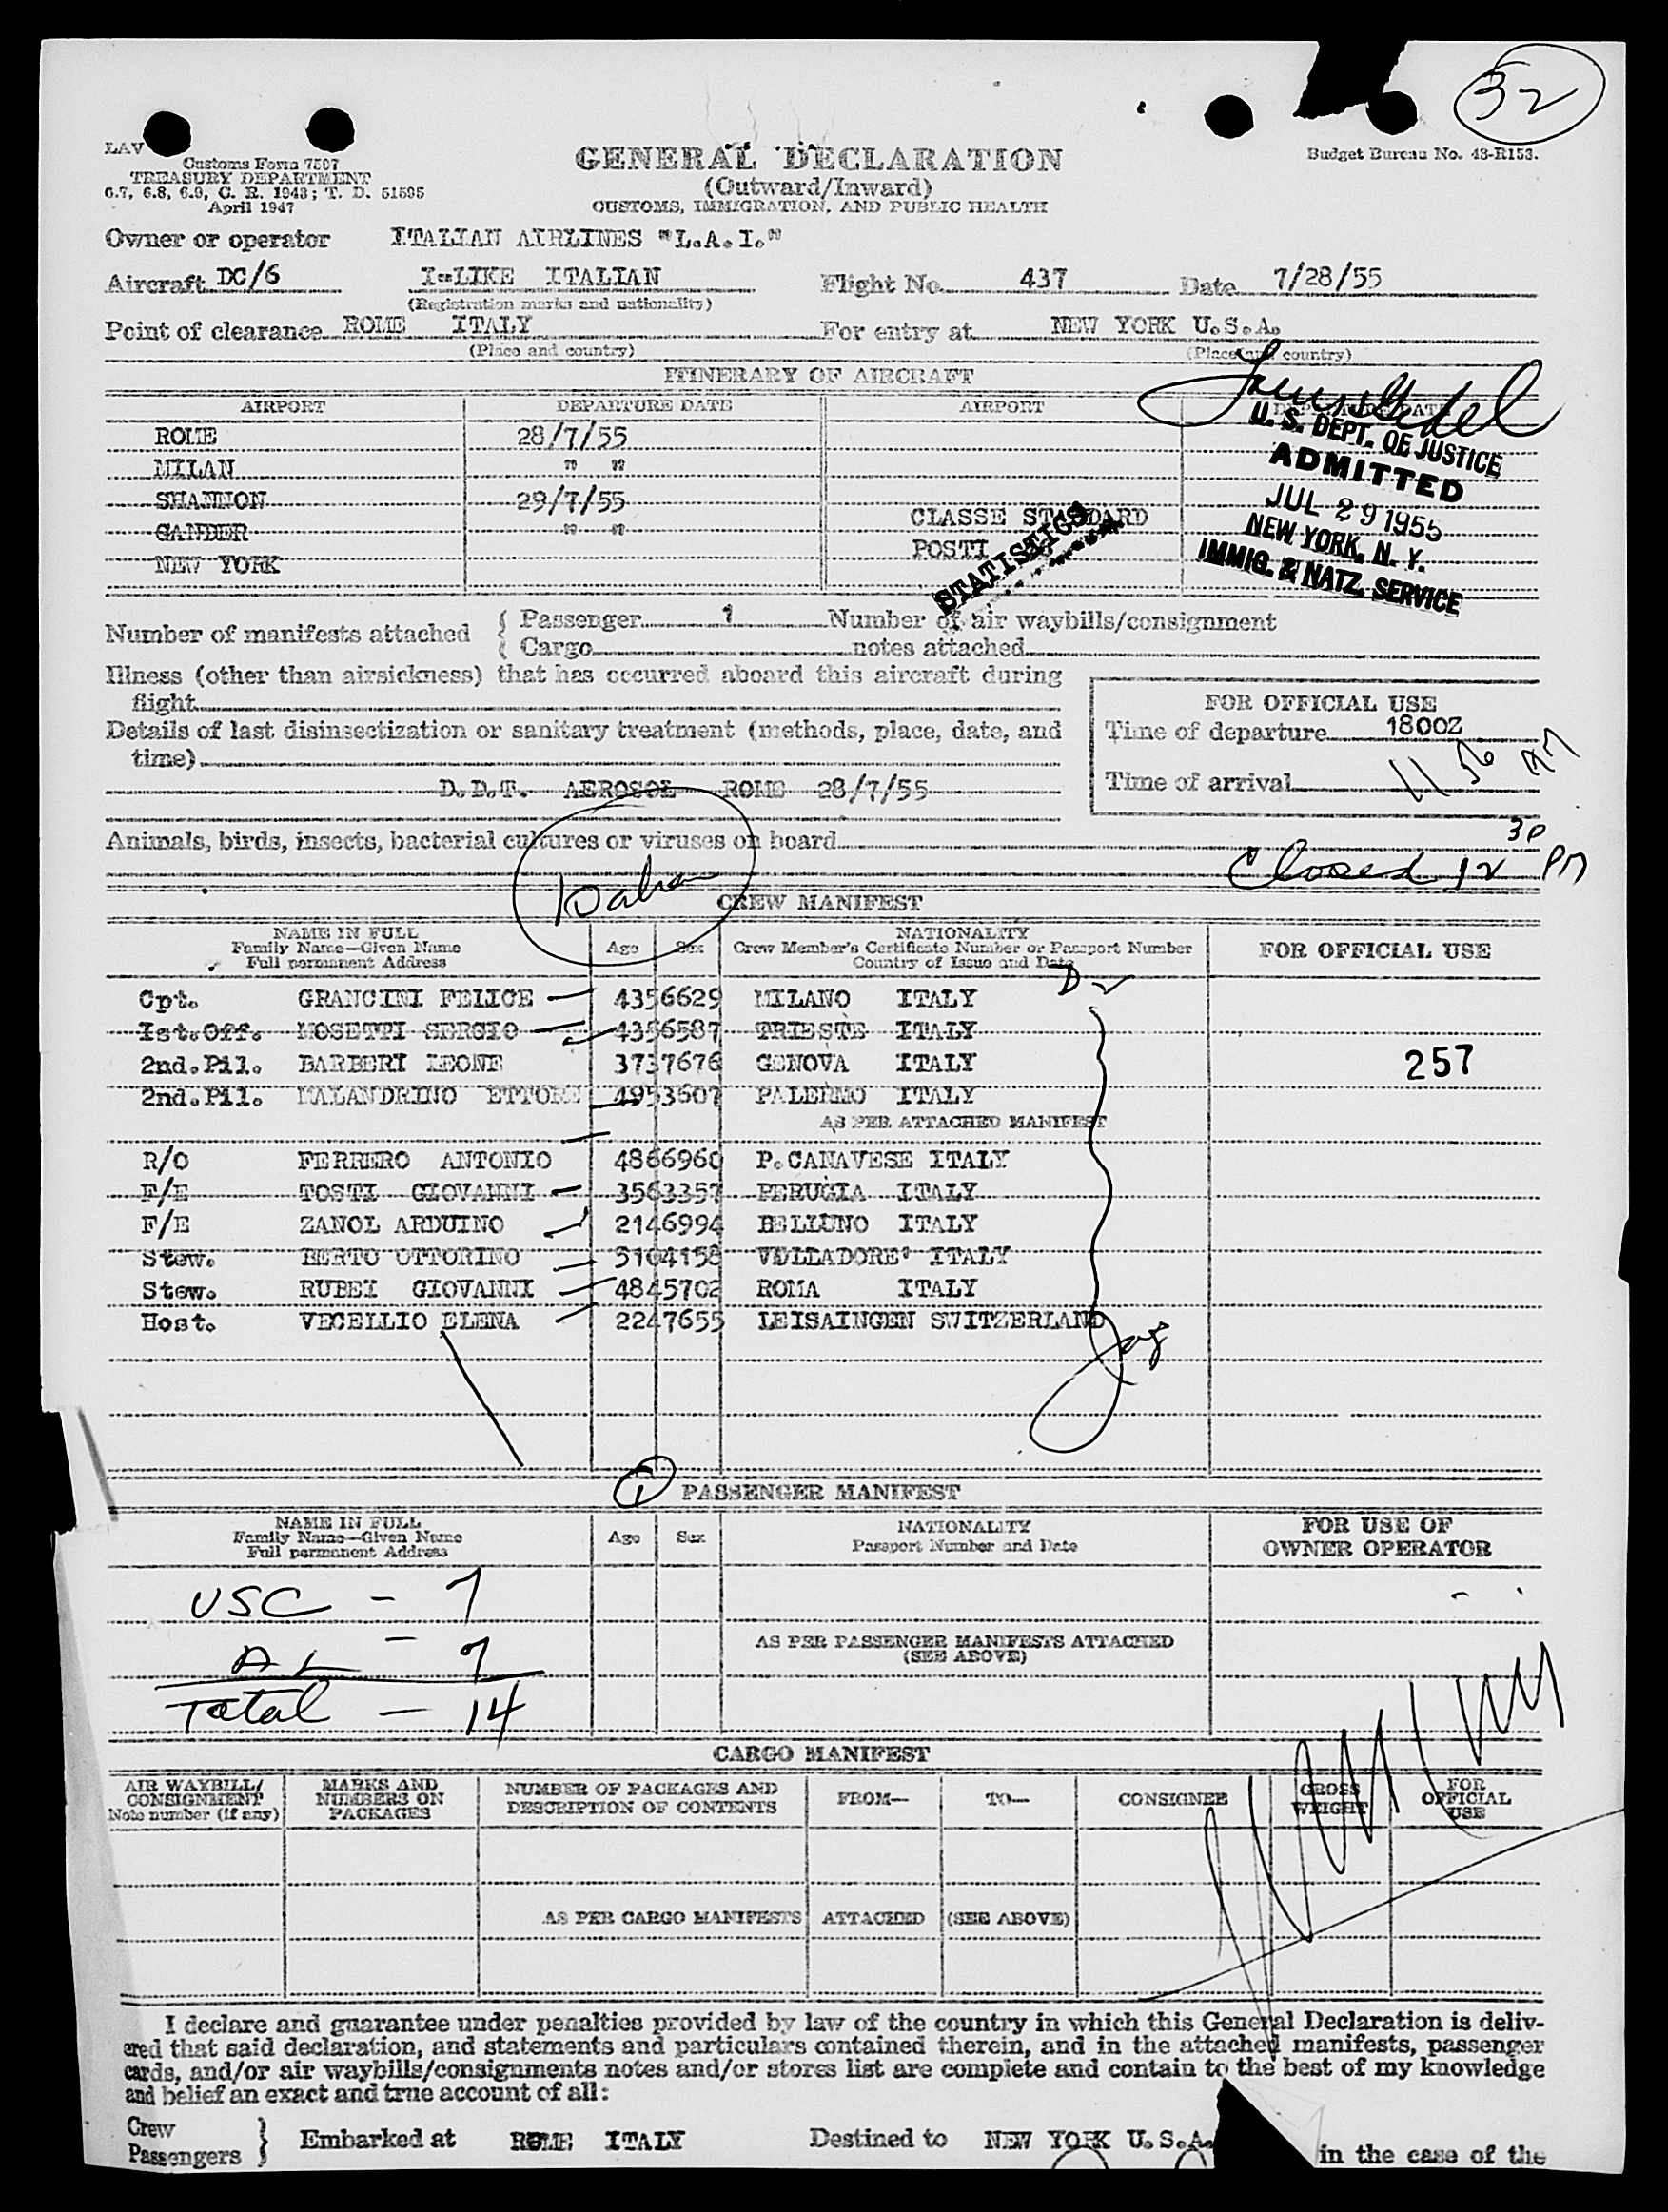 32
LAV
Customs Form 7507
TREASURY DEPARTMENT
6.7, 6.8, 6.9, C. R. 1943; T. D. 51595
April 1947
GENERAL DECLARATION
(Outward/Inward)
CUSTOMS, IMMIGRATION, AND PUBLIC HEALTH
Budget Bureau No. 43-R153.
Owner or operator ITALIAN AIRLINES "L.A.I."
Aircraft DC/6 I-LIKE ITALIAN Flight No. 437 Date 7/28/55
(Registration marks and nationality)
Point of clearance ROME ITALY For entry at NEW YORK U.S.A.
(Place and country) (Place and country)
ITINERARY OF AIRCRAFT
AIRPORT DEPARTURE DATE AIRPORT DEPARTURE DATE
ROME 28/7/55
MILAN " "
SHANNON 29/7/55
GANDER " "
NEW YORK
CLASSE STANDARD
POSTI
STATISTICS
U. S. DEPT. OF JUSTICE
ADMITTED
JUL 29 1955
NEW YORK, N. Y.
IMMIG. & NATZ. SERVICE
Number of manifests attached { Passenger 1 Number of air waybills/consignment
{ Cargo notes attached
Illness (other than airsickness) that has occurred aboard this aircraft during
flight
Details of last disinsectization or sanitary treatment (methods, place, date, and
time)
D.D.T. AEROSOL ROME 28/7/55
FOR OFFICIAL USE
Time of departure 1800Z
Time of arrival 11 56 AM
Animals, birds, insects, bacterial cultures or viruses on board
Closed 12 3P PM
CREW MANIFEST
NAME IN FULL
Family Name—Given Name
Full permanent Address
Age Sex
NATIONALITY
Crew Member's Certificate Number or Passport Number
Country of Issue and Date
FOR OFFICIAL USE
Cpt. GRANCINI FELICE 4356629 MILANO ITALY
Ist.Off. MOSETTI SERGIO 4356587 TRIESTE ITALY
2nd.Pil. BARBERI LEONE 3737676 GENOVA ITALY
257
2nd.Pil. MALANDRINO ETTORE 4953607 PALERMO ITALY
AS PER ATTACHED MANIFEST
R/O FERRERO ANTONIO 4866960 P.CANAVESE ITALY
F/E TOSTI GIOVANNI 3563357 PERUGIA ITALY
F/E ZANOL ARDUINO 2146994 BELLUNO ITALY
Stew. BERTO OTTORINO 5104158 VALLADORE' ITALY
Stew. RUBEI GIOVANNI 4845702 ROMA ITALY
Host. VECELLIO ELENA 2247655 LEISAINGEN SWITZERLAND
1
PASSENGER MANIFEST
NAME IN FULL
Family Name—Given Name
Full permanent Address
Age Sex
NATIONALITY
Passport Number and Date
FOR USE OF
OWNER OPERATOR
USC - 7
AL - 7
Total - 14
AS PER PASSENGER MANIFESTS ATTACHED
(SEE ABOVE)
CARGO MANIFEST
AIR WAYBILL/
CONSIGNMENT
Note number (if any)
MARKS AND
NUMBERS ON
PACKAGES
NUMBER OF PACKAGES AND
DESCRIPTION OF CONTENTS
FROM—
TO—
CONSIGNEE
GROSS
WEIGHT
FOR
OFFICIAL
USE
AS PER CARGO MANIFESTS ATTACHED (SEE ABOVE)
I declare and guarantee under penalties provided by law of the country in which this General Declaration is deliv-
ered that said declaration, and statements and particulars contained therein, and in the attached manifests, passenger
cards, and/or air waybills/consignments notes and/or stores list are complete and contain to the best of my knowledge
and belief an exact and true account of all:
Crew
Passengers } Embarked at ROME ITALY Destined to NEW YORK U.S.A. in the case of the